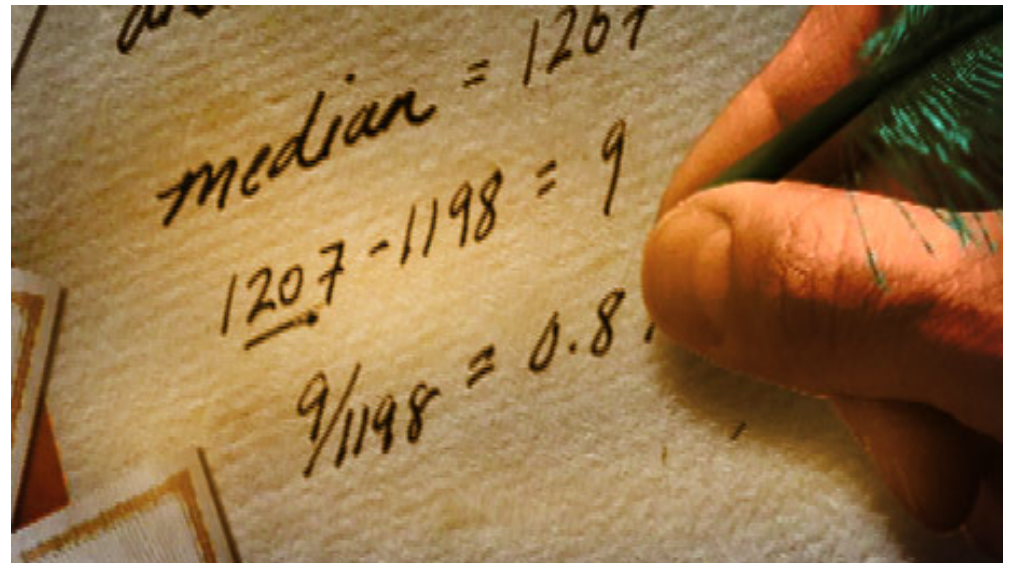 median = 1207
1207-1198 = 9
9/1198 = 0.8